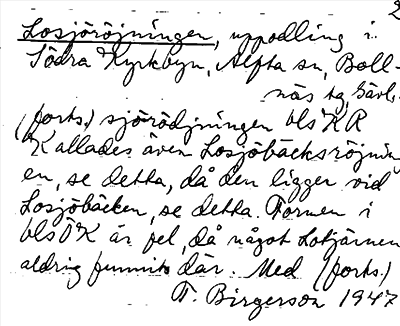 2
Losjöröjningen, uppodling i
Södra Kyrkbyn, Alfta sn, Boll-
näs tg, Gävl.
(forts.) sjörödjningen bls KR
Kallades även Losjöbäcksröjnin
en, se detta, då den ligger vid
Losjöbäcken, se detta. Formen i
bls ÖK är fel, då något Lotjärnen
aldrig funnits där. Med (forts.)
T. Birgerson 1947